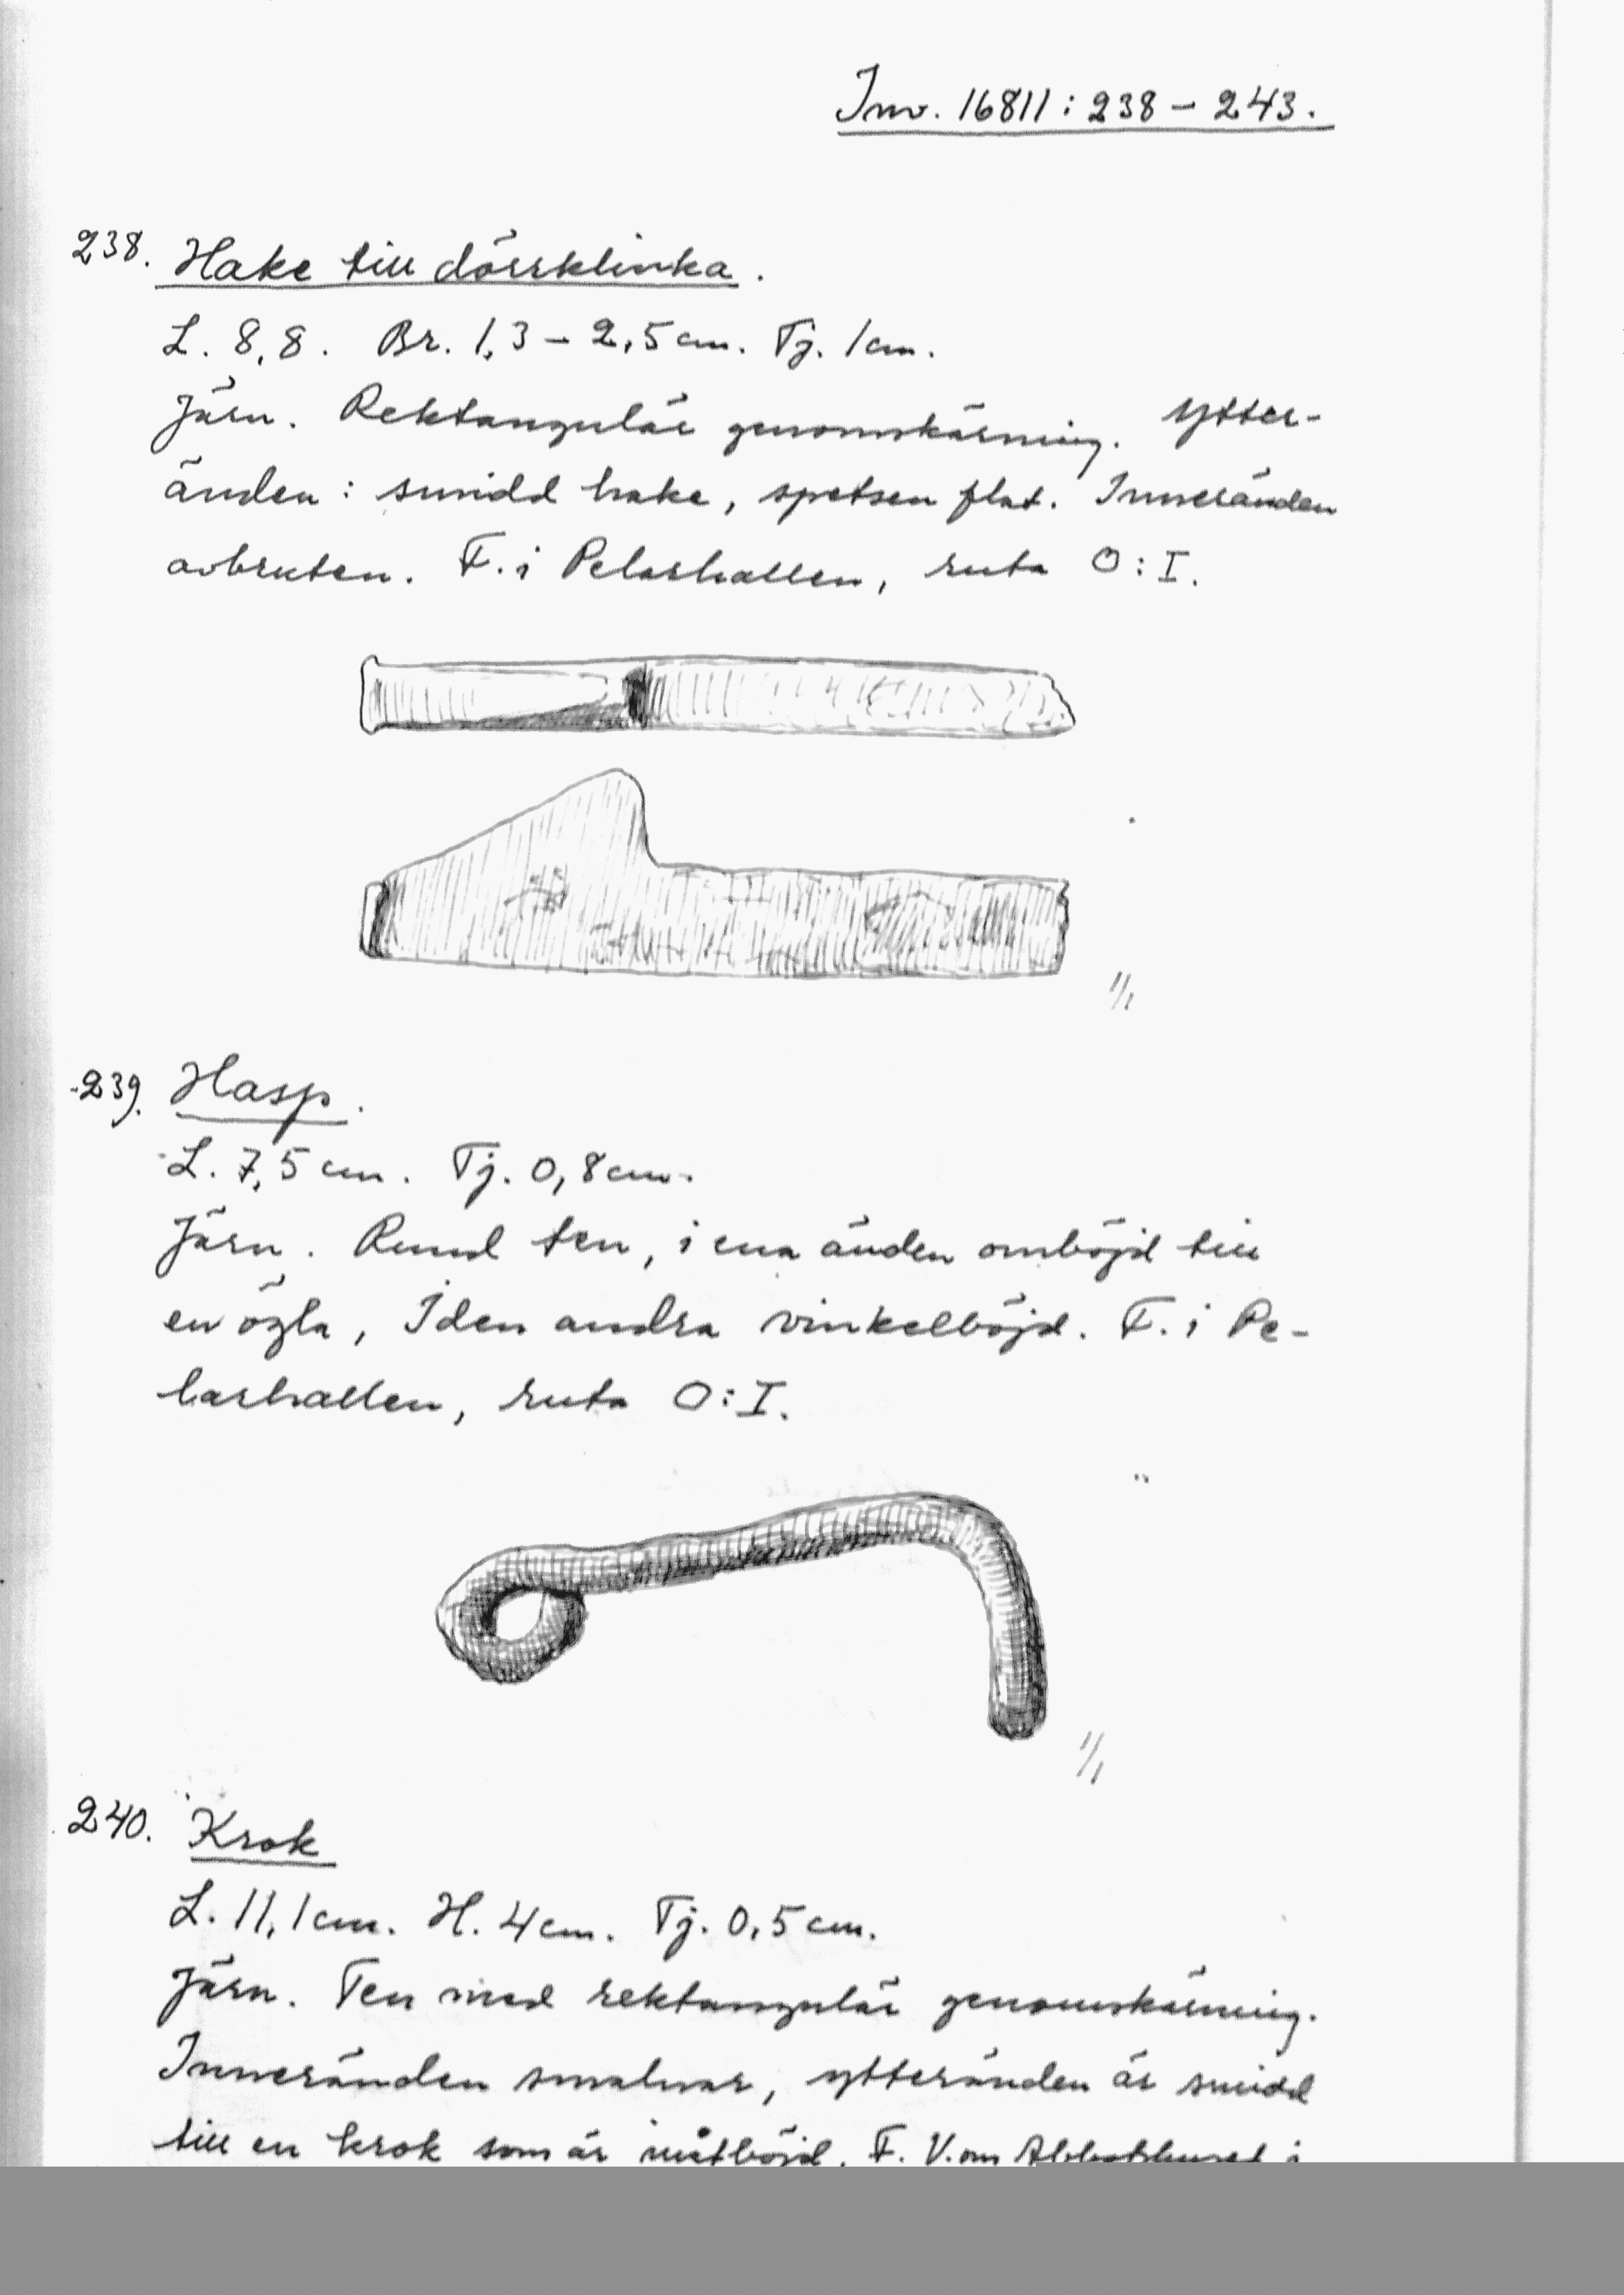 Inv. 16811:238 – 243.
238. Hake till dörrklinka.
L. 8,8. Br. 1,3 – 2,5 cm. Tj. 1 cm.
Järn. Rektangulär genomskärning. Ytter-
änden: smidd hake, spetsen flat. Inneränden
avbruten. F. i Pelarhallen, ruta O:I.
1/1
239. Hasp.
L. 7,5 cm. Tj. 0,8 cm.
Järn. Rund ten, i ena änden ombøjd till
en ögla, I den andra vinkelböjd. F. i Pe-
larhallen, ruta O:I.
1/1
240. Krok
L. 11,1 cm. H. 4 cm. Tj. 0,5 cm.
Järn. Ten med rektangulär genomskärning.
Inneränden smalnar, ytteränden är smidd
till en krok som är utböjd. F. V. om Abbotshuset i